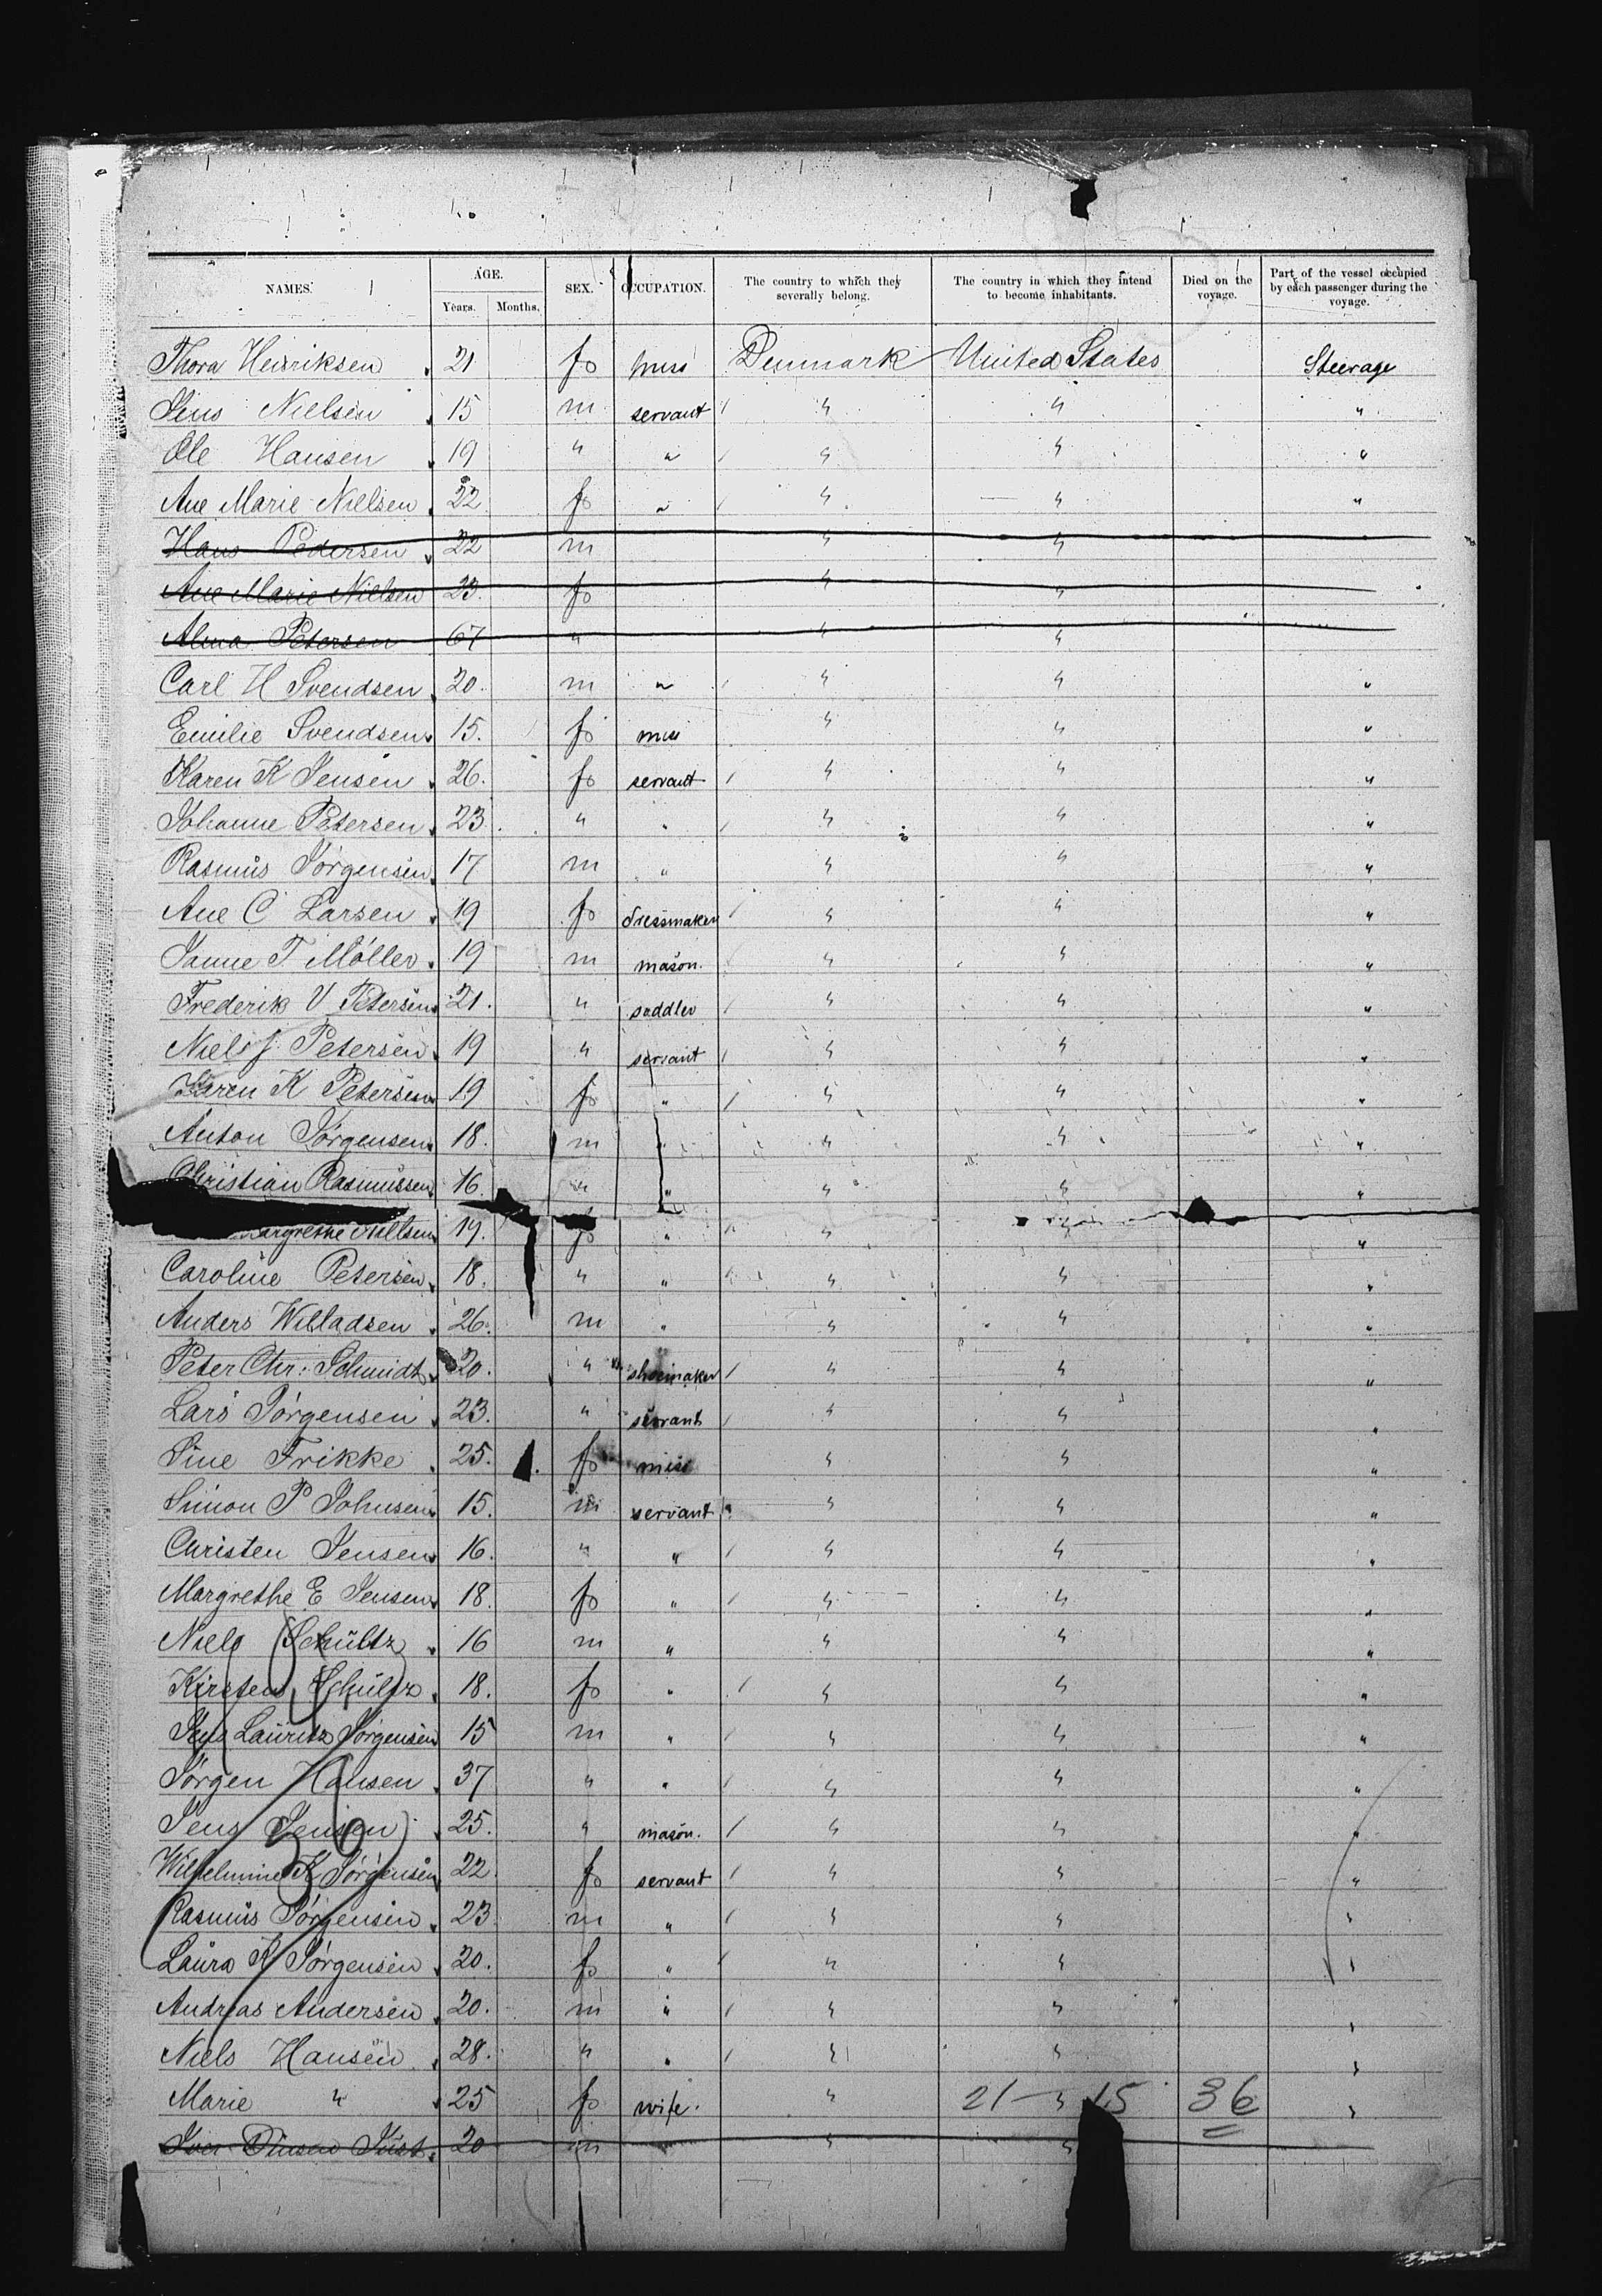 NAMES. AGE. SEX. OCCUPATION. The country to which they severally belong. The country in which they intend to become inhabitants. Died on the voyage. Part of the vessel occupied by each passenger during the voyage.
Years. Months.
Thora Henriksen 21 f miss Denmark United States Steerage
Jens Nielsen 15 m servant " " "
Ole Hansen 19 " " " " "
Ane Marie Nielsen 22 f " " " "
Hans Pedersen 22 m " "
Ane Marie Nielsen 23. f " "
Alma Petersen 67 " " "
Carl H Svendsen 20. m " " " "
Emilie Svendsen 15. f miss " " "
Karen K Jensen 26. f servant " " "
Johanne Petersen 23 " " " " "
Rasmus Jörgensen 17 m " " " "
Ane C Larsen 19 f dressmaker " " "
Janne T. Möller 19 m mason. " " "
Frederik V Petersen 21. " saddler " " "
Niels J. Petersen 19 " servant " " "
Karen K Petersen 19 f " " " "
Anton Jörgensen 18. m " " " "
Christian Rasmussen 16. " " " " "
Margrethe Nielsen 19. f " " " "
Caroline Petersen 18. " " " " "
Anders Willadsen 26. m " " " "
Peter Chr: Schmidt 20. " shoemaker " " "
Lars Jörgensen 23. " servant " " "
Sine Frikke 25. f miss " " "
Simon P Johnsen 15. m servant " " "
Christen Jensen 16. " " " " "
Margrethe E Jensen 18. f " " " "
Niels Schültz 16 m " " " "
Kirsten Schültz 18. f " " " "
Jens Lauritz Jörgensen 15 m " " " "
Jörgen Hansen 37 " " " " "
Jens Jensen 25. " mason. " " "
Wilhelmine K Jörgensen 22 f servant " " "
Rasmus Jörgensen 23 m " " " "
Laura K Jörgensen 20. f " " " "
Andreas Andersen 20. m " " " "
Niels Hansen 28. " " " " "
Marie " 25 f wife. " 21 - " 15 36 "
Iver 20 m " "